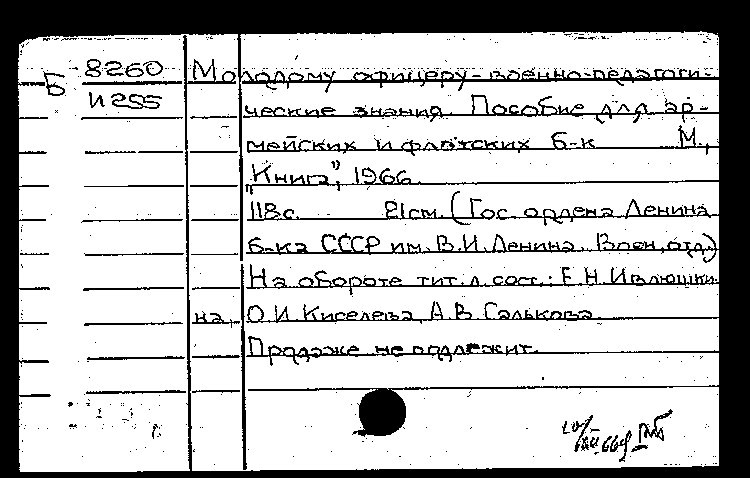 Б 8260 Молодому офицеру - военно-педагоги-
И255 ческие знания. Пособие для ар-
мейских и флотских б-к М.,
"Книга", 1966.
118с. 21см. (Гос. ордена Ленина
б-ка СССР им. В.И. Ленина. Воен. отд.)
На обороте тит. л. сост.: Е.Н. Ивлюшки-
на, О.И. Киселева, А.В. Салькова.
Продаже не подлежит.